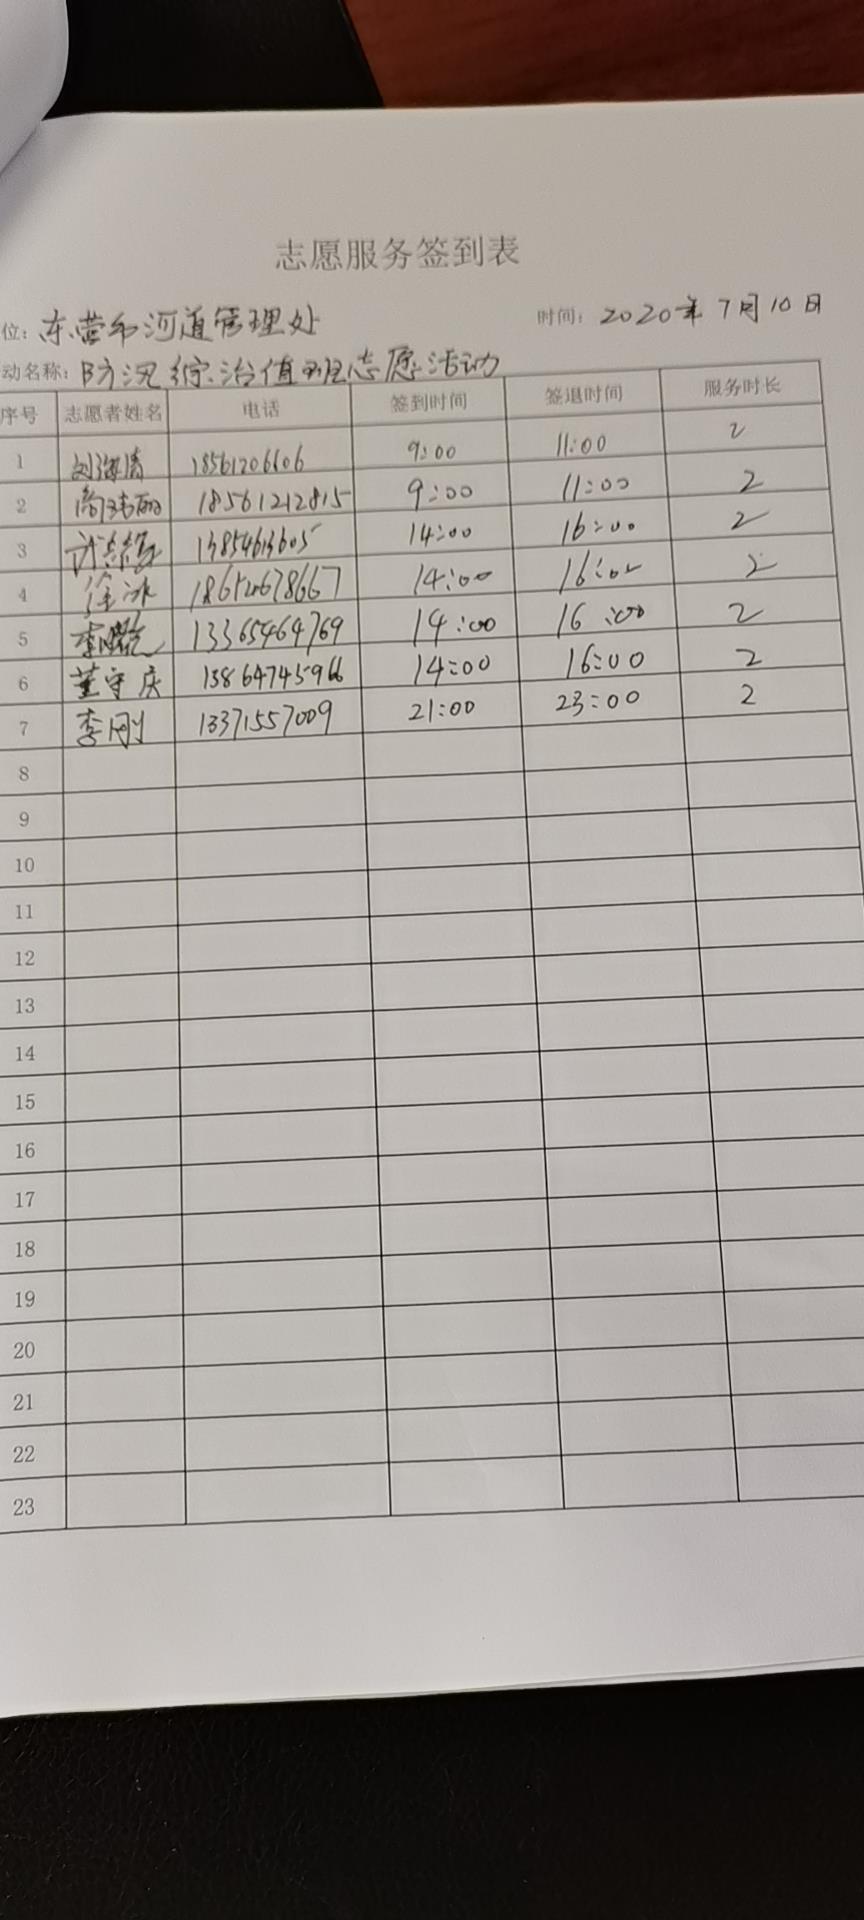 志愿服务签到表
位: 东营市河道管理处 时间: 2020年7月10日
动名称: 防汛综治值班志愿活动
序号 志愿者姓名 电话 签到时间 签退时间 服务时长
1 刘海清 18561206606 9:00 11:00 2
2 18561212815 9:00 11:00 2
3 14:00 16:00 2
4 徐冰 14:00 16:00 2
5 13365464769 14:00 16:00 2
6 董守庆 13864745966 14:00 16:00 2
7 李刚 13371557009 21:00 23:00 2
8
9
10
11
12
13
14
15
16
17
18
19
20
21
22
23